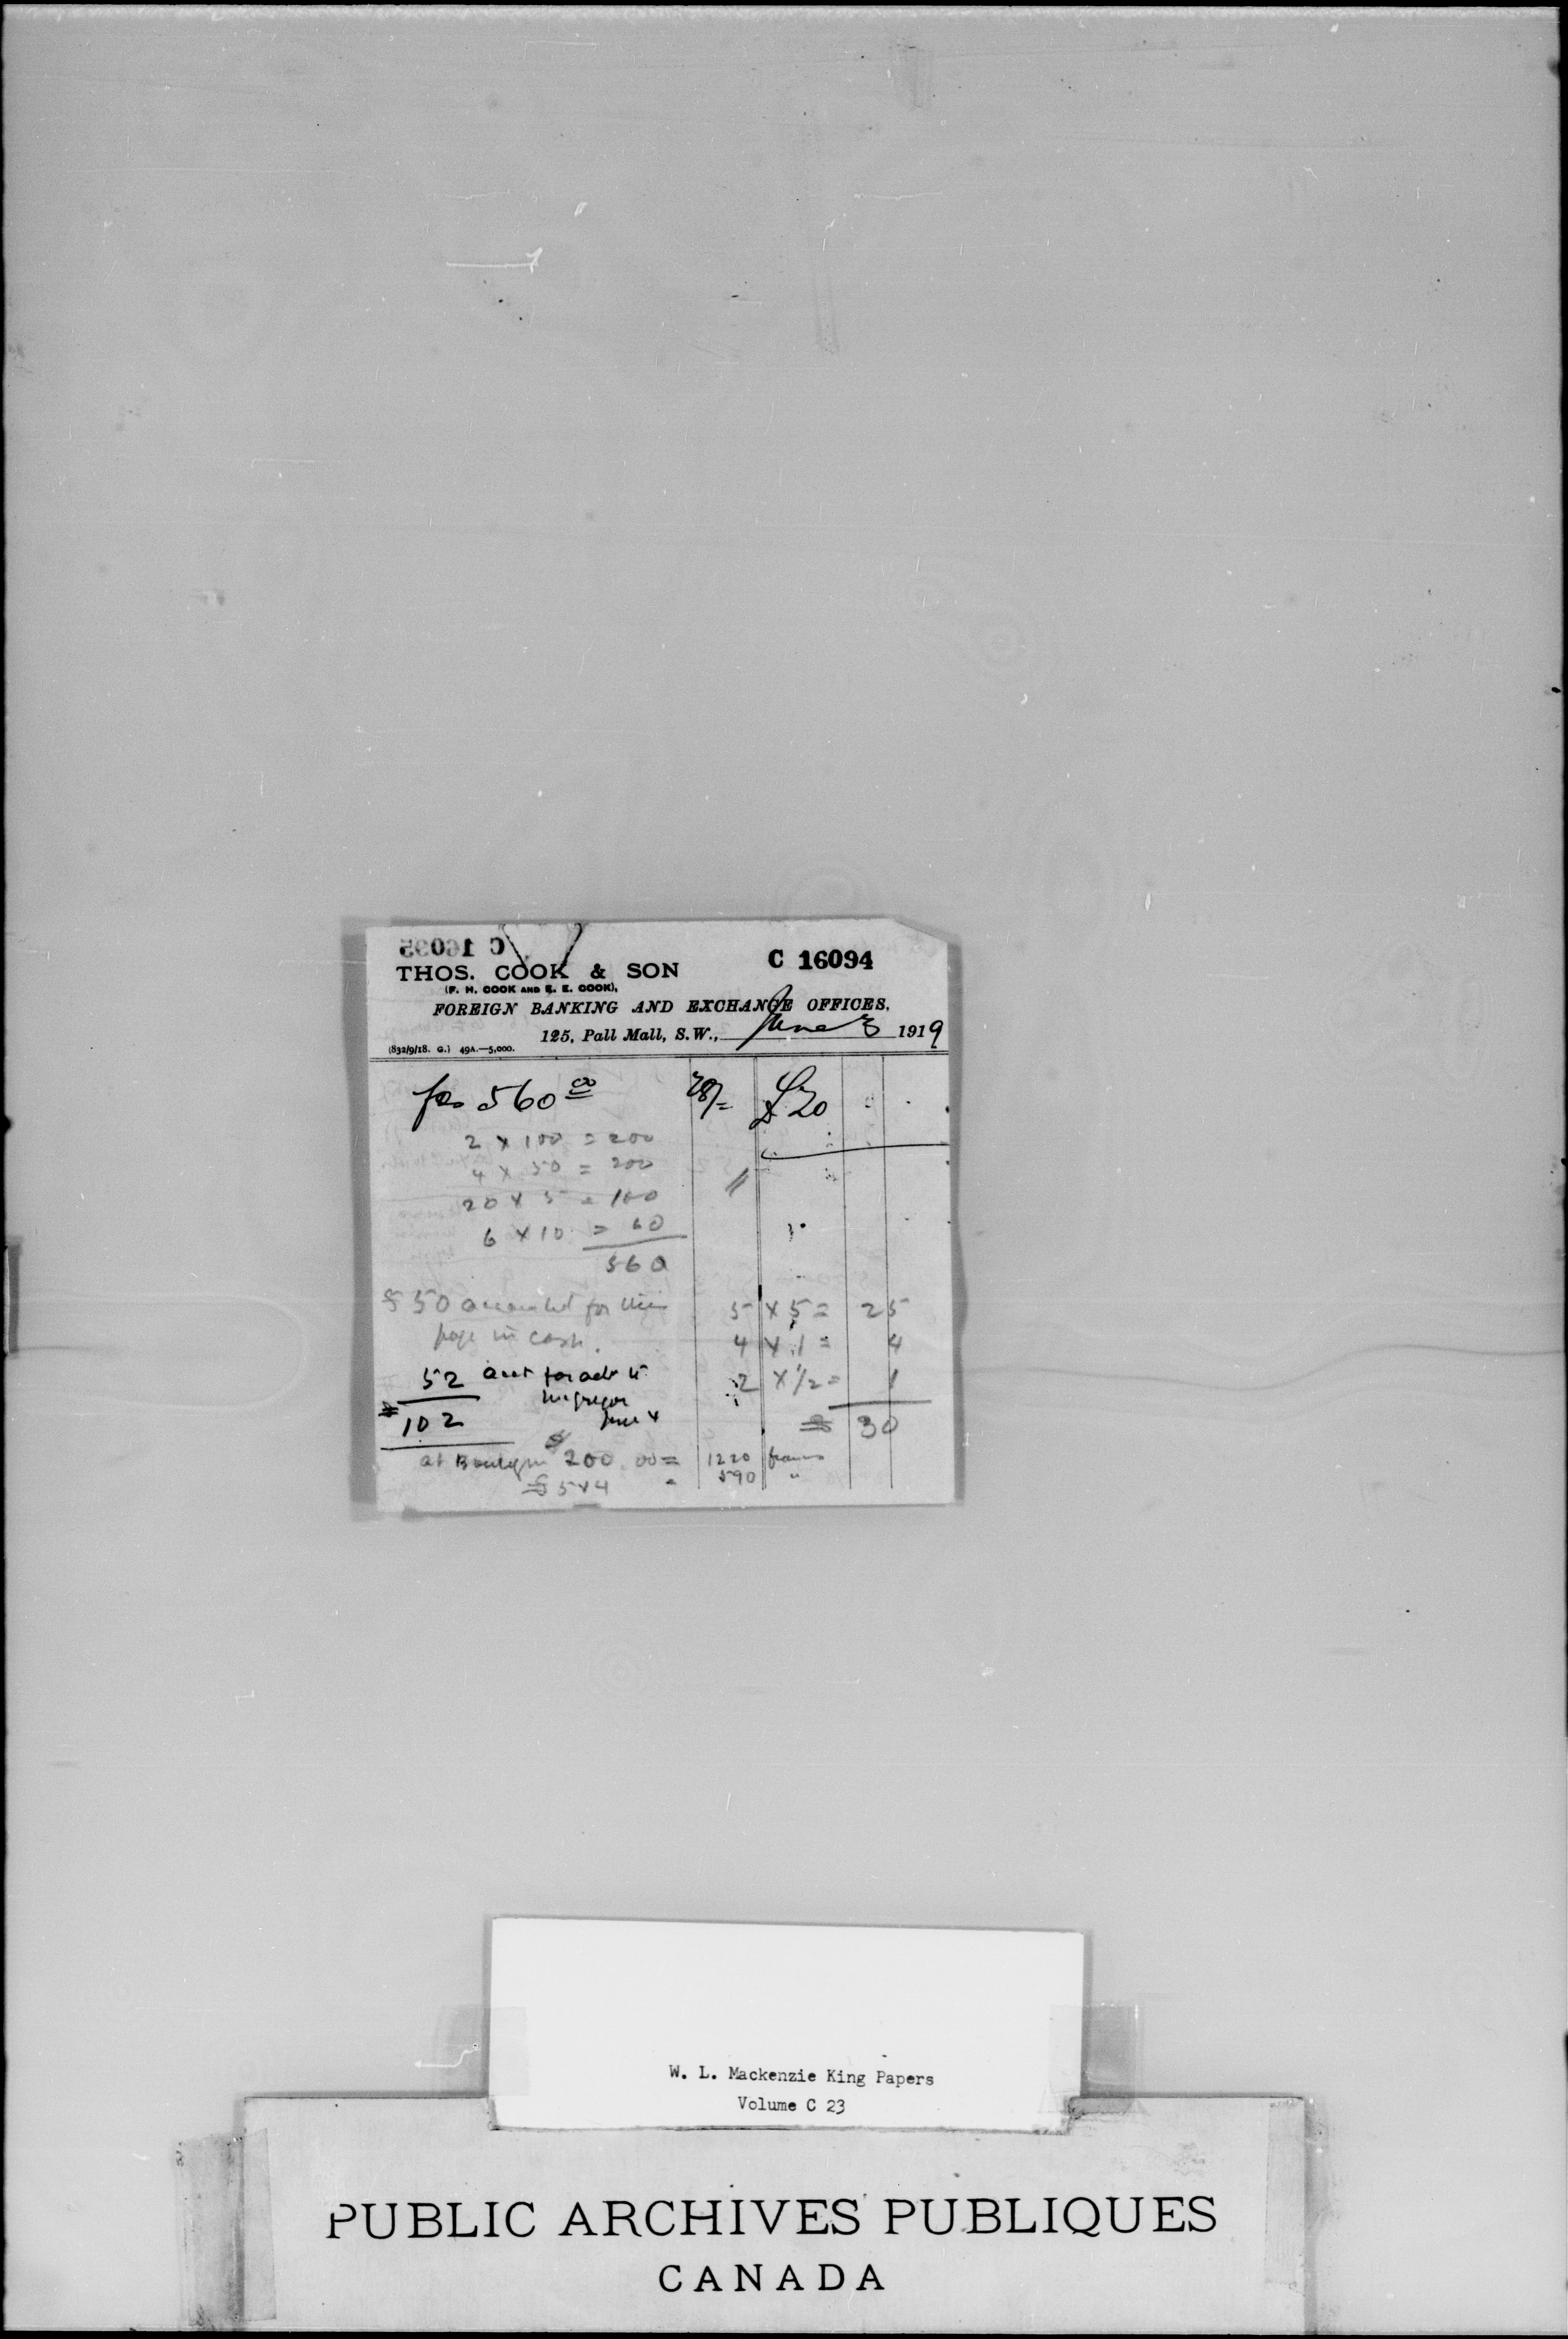 C 16095
C 16094
THOS. COOK & SON
(F. H. COOK AND E. E. COOK),
FOREIGN BANKING AND EXCHANGE OFFICES,
125, Pall Mall, S.W., June 3 1919
(832/9/18. G.) 49A.—5,000.
fcs 560 00 28/= £20
2 x 100 = 200
4 x 50 = 200
20 x 5 = 100
6 x 10 = 60
560
£50 accounted for this 5 x 5 = 25
page in cash. 4 x 1 = 4
52 acct for adv to 2 x 1/2 = 1
McGregor
102 June 4 £ 30
at Boulogne 200.00 = 1220 francs
590 "
W. L. Mackenzie King Papers
Volume C 23
PUBLIC ARCHIVES PUBLIQUES
CANADA